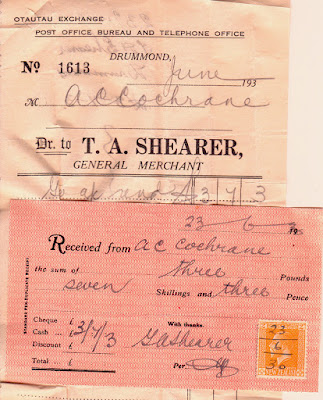 OTAUTAU EXCHANGE
POST OFFICE BUREAU AND TELEPHONE OFFICE
DRUMMOND, June 193
No 1613
M A C Cochrane
Dr. to T. A. SHEARER,
GENERAL MERCHANT
3/7/3
23 6 193
Received from A C Cochrane
the sum of three Pounds
seven Shillings and three Pence
Cheque £
Cash ... £ 3/7/3
Discount £
Total ... £
With thanks.
T A Shearer
Per
STANDARD PEN DUPLICATE RECEIPT.
23
6
36